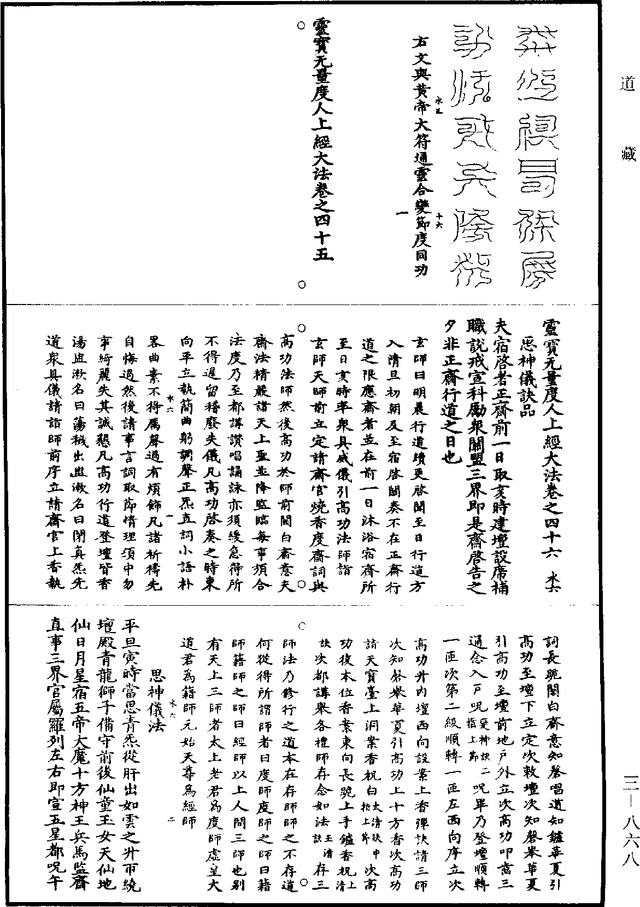 道藏
右文與黃帝大符通靈合變節度同功
水五
十六
一
靈寶无量度人上經大法卷之四十五
靈寶无量度人上經大法卷之四十六
水六
思神儀訣品
夫宿啓者正齋前一日取亥時建壇設席補
職說戒宣科勵衆關盟三界即是齋啓告之
夕非正齋行道之日也
玄師曰明晨行道續更啓聞至日行道方
入清旦初朝及至宿啓關奏不在正齋行
道之限應齋者並在前一日沐浴宿齋所
至日亥時率衆具威儀引高功法師詣
玄師天師前立定請齋官燒香度齋詞與
高功法師然後高功於師前關白齋意夫
齋法精嚴諸天上聖並降監臨每事須合
法度乃至都講讚唱誦詠亦須緩急得所
不得遲留稽廢失儀凡高功啓奏之時東
向平立執簡曲躬調聲正炁直詞小語朴
畧曲素不得厲聲過有煩飾凡諸祈禱先
自悔過然後請事言詞取節情理須中勿
事綺麗失其誠懇凡高功行道登壇皆香
湯盥漱名曰蕩穢出盥漱名曰閉真炁先
道衆具儀請詣師前序立請齋官上香執
水六
一
詞長跪關白齋意知磬唱道如鑪華夏引
高功至壇下立定次敕壇次知磬舉華夏
引高功至壇前地戶外立次高功叩齒三
通念入戶呪
二呪畢乃登壇順轉
一匝次第二級順轉一匝左西向序立次
高功升内壇西向設案上香彈訣請三師
次知磬舉華夏引高功上十方香次高功
請天寶臺上洞案香祝白
次高
功後本位香案東向長跪上手鑪香祝
次都講舉各禮師存念如法
存三
師法乃修行之道本在存師師之不存道
何從得所謂師者曰度師度師之師曰籍
師籍師之師曰經師以上人間三師也别
有天上三師者太上老君為度師虛皇大
道君為籍師元始天尊為經師
思神儀法
水六
二
平旦寅時當思青炁從肝出如雲之升帀繞
壇殿青龍獅子備守前後仙童玉女天仙地
仙日月星宿五帝大魔十方神王兵馬監齋
直事三界官屬羅列左右即宣五星都呪午
三—八六八